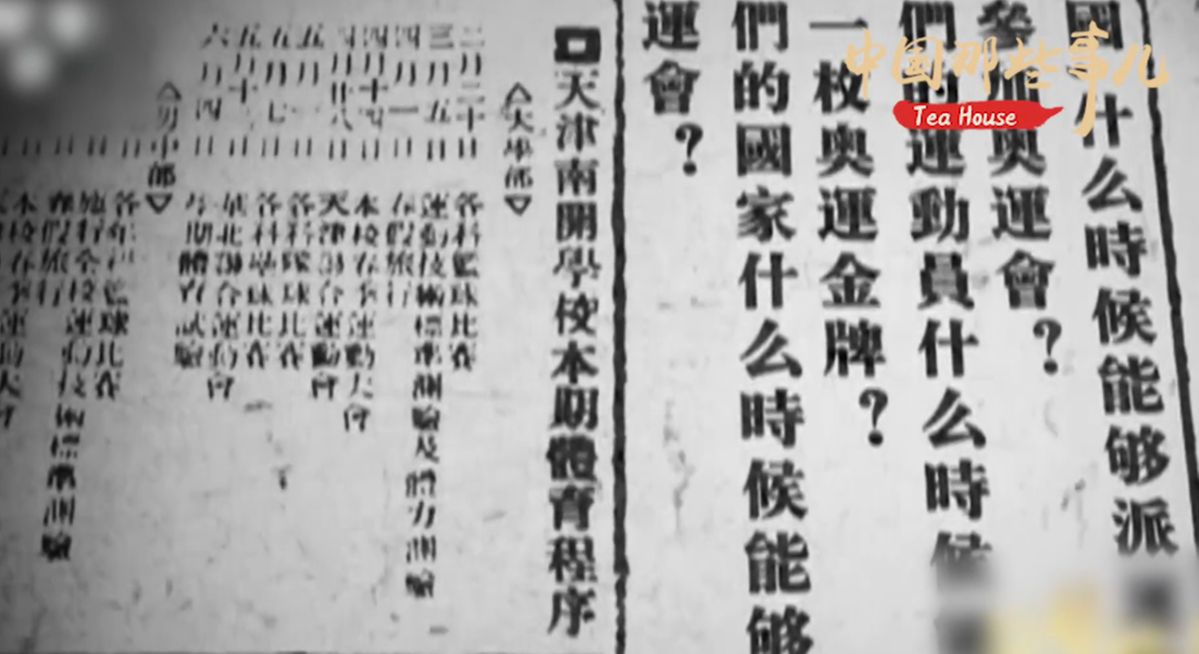 中国那些事儿
Tea House
國什么時候能够派
參加奥運會？
們的運動員什么時候
一枚奥運金牌？
們的國家什么時候能够
運會？
天津南開學校本期體育程序
大學部
二月二十日 各科籃球比賽
三月五日 運動技術標準測驗及體力測驗
四月一日 春假旅行
四月十四日 本校春季運動大會
四月廿八日 天津聯合運動會
五月 日 各科隊球比賽
五月七日 各科壘球比賽
五月十 日 華北聯合運動會
六月四日 本期體育試驗
初中部
籃球比賽
運動技術標準測驗
春假旅行
本校春季運動大會